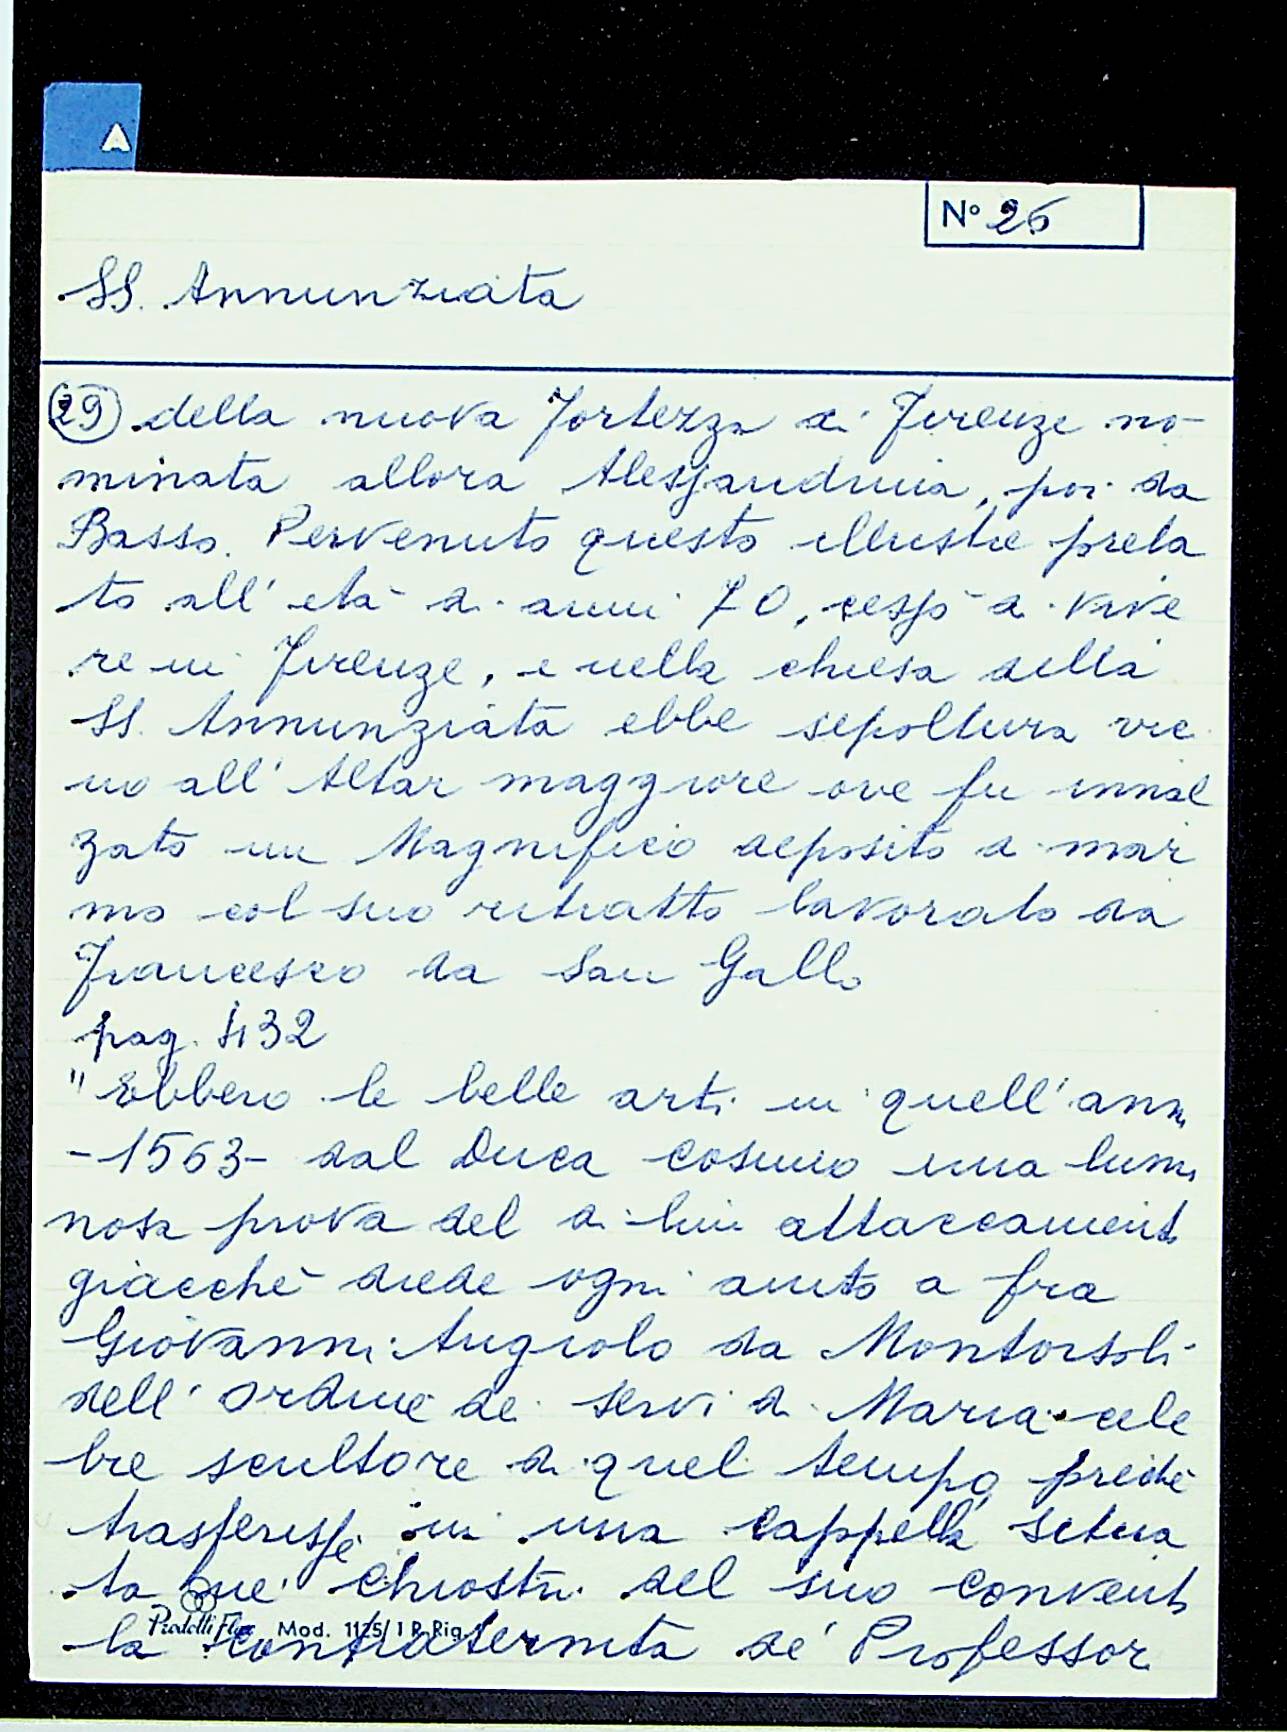 A
N° 26
SS. Annunziata
29 della nuova fortezza di Firenze no-
minata allora Alessandrina, poi da
Basso. Pervenuto questo illustre prela
to all' età di anni 70, cessò di vive
re in Firenze, e nella chiesa della
SS. Annunziata ebbe sepoltura vic
no all' Altar maggiore ove fu innal
zato un Magnifico deposito di mar
mo col suo ritratto lavorato da
Francesco da San Gallo
pag. 432
"Ebbero le belle arti in quell' anno
-1563- dal Duca Cosimo una lumi
nosa prova del di lui attaccamento
giacchè diede ogni aiuto a fra
Giovanni Angiolo da Montorsoli
dell' Ordine de' Servi di Maria cele
bre scultore di quel tempo,
trasferisse in una cappella situa
ta ne' chiostri del suo convento
la confraternita de' Professor
Mod. 1125/1 R. Rig.